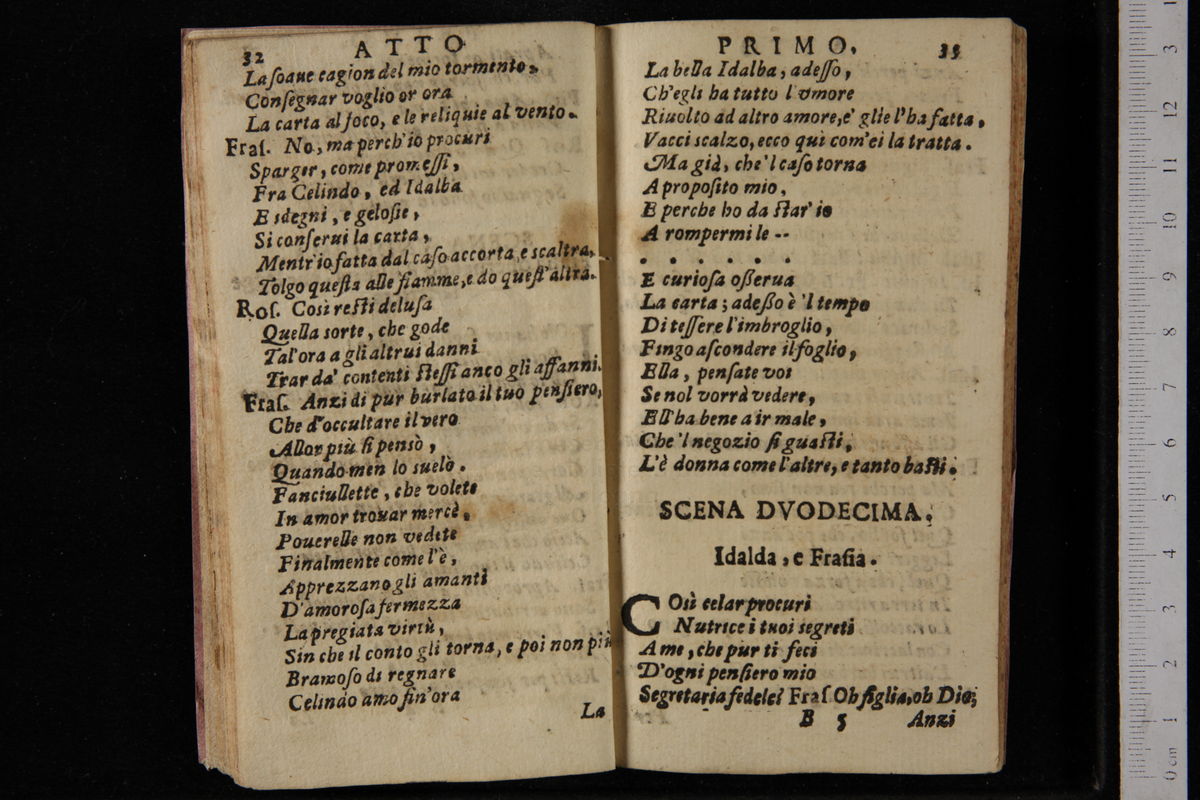 32 ATTO
La soaue cagion del mio tormento,
Consegnar voglio or ora
La carta al foco, e le reliquie al vento.
Fras. No, ma perch'io procuri
Sparger, come promessi,
Fra Celindo, ed Idalba
E sdegni, e gelosie,
Si conserui la carta,
Mentr'io fatta dal caso accorta, e scaltra,
Tolgo questa alle fiamme, e do quest'altra.
Ros. Così resti delusa
Quella sorte, che gode
Tal'ora a gli altrui danni
Trar da' contenti stessi anco gli affanni.
Fras. Anzi di pur burlato il tuo pensiero,
Che d'occultare il vero
Allor più si pensò,
Quando men lo suelò.
Fanciullette, che volete
In amor trouar mercè,
Pouerelle non vedete
Finalmente come l'è,
Apprezzano gli amanti
D'amorosa fermezza
La pregiata virtù,
Sin che il conto gli torna, e poi non più
Bramoso di regnare
Celindo amo fin'ora
La
PRIMO. 33
La bella Idalba, adesso,
Ch'egli ha tutto l'vmore
Riuolto ad altro amore, e' glie l'ha fatta.
Vacci scalzo, ecco quì com'ei la tratta.
Ma già, che'l caso torna
A proposito mio,
E perche ho da star'io
A rompermi le --
. . . . . .
E curiosa osserua
La carta; adesso è 'l tempo
Di tessere l'imbroglio,
Fingo ascondere il foglio,
Ella, pensate voi
Se nol vorrà vedere,
Ell'ha bene a ir male,
Che 'l negozio si guasti,
L'è donna come l'altre, e tanto basti.
SCENA DVODECIMA.
Idalda, e Frasia.
COsì celar procuri
Nutrice i tuoi segreti
A me, che pur ti feci
D'ogni pensiero mio
Segretaria fedele? Fras. Oh figlia, oh Dio;
B 5 Anzi